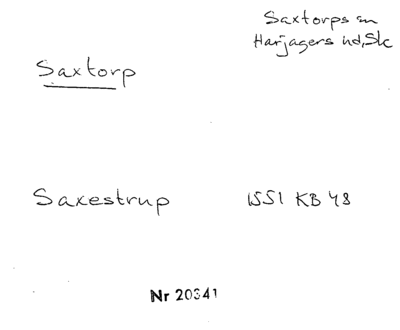 Saxtorps sn
Harjagers hd, Sk
Saxtorp
Saxestrup 1551 KB 48
Nr 20341